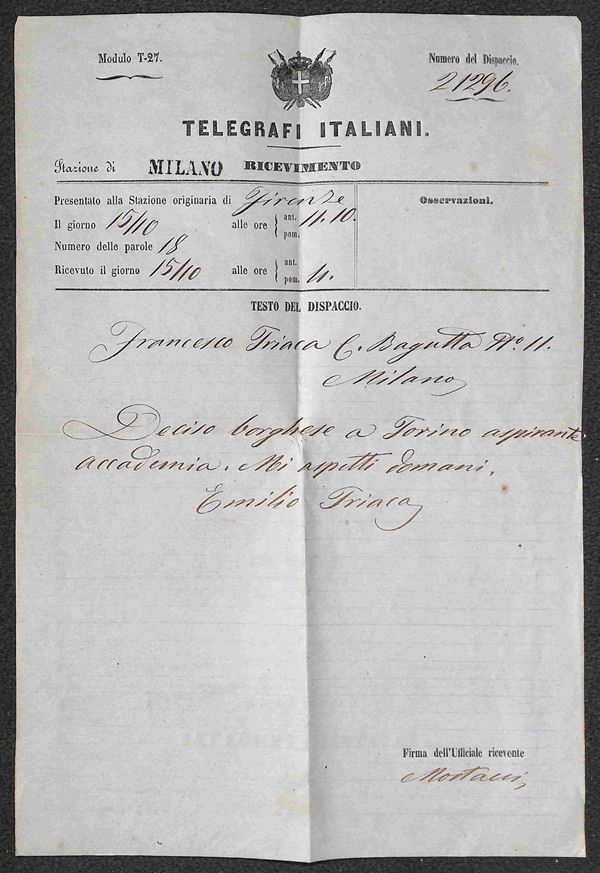 Modulo T-27.
Numero del Dispaccio.
21296.
TELEGRAFI ITALIANI.
Stazione di MILANO RICEVIMENTO
Presentato alla Stazione originaria di Firenze
Il giorno 15/10 alle ore { ant. pom. 11.10.
Numero delle parole 18
Ricevuto il giorno 15/10 alle ore { ant. pom. 4.
Osservazioni.
TESTO DEL DISPACCIO.
Francesco Triaca C. Bagutta No. 11.
Milano
Deciso borghese a Torino aspirante
accademia. Mi aspetti domani.
Emilio Triaca
Firma dell'Ufficiale ricevente